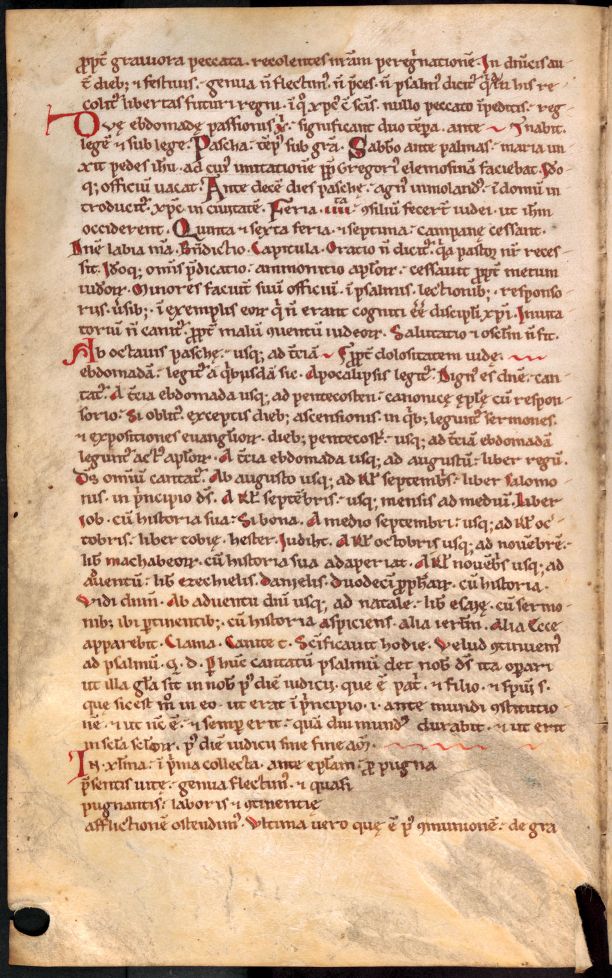 ꝓpt̄ grauiora peccata. recolentes nr̄am peregͥnationē. In dn̄icis au
t̄ dieb; & festiuis. genua n̄ flectim᷒. n̄ p̄ces. n̄ psalm᷒ dicit᷒ his re
colit᷒ libertas futuri regni. nullo peccato īpeditis. reg
Dvę ebdomadę passionis. significant duo tēpa. ante inabit.
legē & sub lege. Pascha. tēp᷒ sub gr̄a. Sabb̄o ante palmas. maria un
xit pedes ih̄u. ad cui᷒ imitationē Gregori᷒ elemosinā faciebat. Ido
q; officiū uacat. Ante decē dies paschę. agn᷒ immoland᷒. ī domū in
troducit᷒. xp̄c in ciuitatē. Feria .iiii. ɔsiliū fecer̄t iudei. ut ih̄m
occiderent. Quinta & sexta feria. & septima. campanę cessant.
Dn̄e labia m̄a. Bn̄dictio. Capitula. Oratio n̄ dicit᷒. qͥa pastor nr̄ reces
sit. Idoq; om̄is p̄dicatio. ammonitio apl̄oꝝ. cessauit ꝓpt̄ metum
iudeoꝝ. Minores faciunt suū officiū. ī psalmis. lectionib;. responso
riis. ūsib;. ī exemplis eoꝝ qͥ n̄ erant cogniti eē̄ discipli xp̄i. Inuita
toriū n̄ canit᷒. ꝓpt̄ malū ɔuentū iudeoꝝ. Salutatio & oscl̄m n̄ fit.
Ab octauis paschę. usq; ad t̄ciā ꝓpt̄ dolositatem iude.
ebdomadā. legit᷒ a qͥbusdā sic. Apocalipsis legit᷒. Dign᷒ es dn̄e. can
tat᷒. A t̄cia ebdomada usq; ad pentecosten. canonicę ep̄lę cū respon
sorio. Si oblit᷒. exceptis dieb; ascensionis. in qͥb; legunt᷒ sermones.
& expositiones euangl̄ioꝝ. dieb; pentecost᷒. usq; ad t̄ciā ebdomadā
legunt᷒ act᷒ apl̄oꝝ. A t̄cia ebdomada usq; ad augustū. liber regū.
Ds̄ omniū cantat᷒. Ab augusto usq; ad kl̄ septemb̄s. liber salomo
nis. in p̄ncipio ds̄. A kl̄ septēbris. usq; mensis ad mediū. Liber
iob. cū historia sua. Si bona. A medio septembri. usq; ad kl̄ oc
tobris. liber tobię. hester. Iudiht. A kl̄ octobris usq; ad nouēbrē.
lib̄ machabeoꝝ. cū historia sua adaperiat. A kl̄ nouēb̄s usq; ad
aduentū. lib̄ ezechielis. danielis. duodecī ꝓph̄aꝝ. cū historia.
Vidi dn̄m. Ab aduentu dn̄i usq; ad natale. lib̄ esaię. cū sermo
nib; ibi pertinentib;. cū historia aspiciens. alia ierl̄m. Alia Ecce
apparebit. Clama. Canite t. Sc̄ificauit hodie. Velud ɔtinuem᷒
ad psalmū. q. d. P hūc cantatū psalmū det nob̄ ds̄ ita operari
ut illa gl̄a sit in nob̄ p᷒ diē iudicii. que ē patͥ. & filio. & spūi s.
que sic est m̄ in eo. ut erat ī p̄ncipio. i. ante mundi ɔstitutio
nē. & ut nc̄ ē. & semper erit. quā diu mund᷒ durabit. & ut erit
in sc̄la sc̄loꝝ. p᷒ diē iudicii sine fine am̄.
In .xl̄ma. ī pͥma collecta. ante epl̄am. ꝓ pugna
p̄sentis uitę. genua flectim᷒. & quasi
pugnantis. laboris & ɔtinentię
afflictionē ostendim᷒. Vltima uero quę ē p᷒ ɔmunionē. de gra